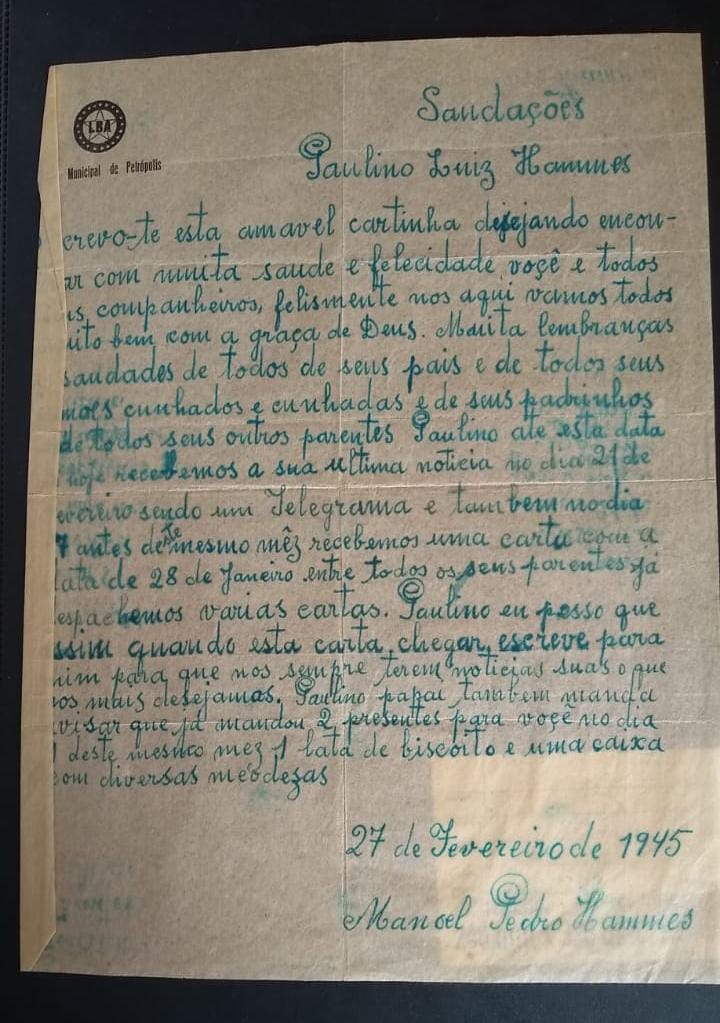 LBA
Municipal de Petrópolis
Saudações
Paulino Luiz Hammes
crevo-te esta amavel cartinha desejando encon-
ar com muita saude e felecidade voçê e todos
us companheiros, felismente nos aqui vamos todos
uito bem com a graça de Deus. Muita lembranças
saudades de todos de seus pais e de todos seus
mãos cunhados e cunhadas e de seus padrinhos
de todos seus outros parentes Paulino ate esta data
hoje recebemos a sua ultima noticia no dia 21 de
evereiro sendo um Telegrama e tambem no dia
7 antes deste mesmo mêz recebemos uma carta com a
data de 28 de Janeiro entre todos os seus parentes já
espachemos varias cartas. Paulino eu pesso que
ssim quando esta carta chegar, escreve para
mim para que nos sempre terem noticias suas o que
nos mais desejamas. Paulino papai tambem manda
avisar que já mandou 2 presentes para voçê no dia
1 deste mesmo mez 1 lata de biscoito e uma caixa
com diversas meodezas
27 de Fevereiro de 1945
Manoel Pedro Hammes